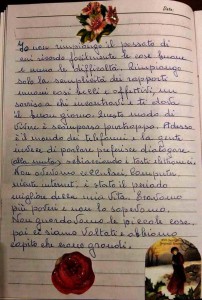 Data
Io non rimpiango il passato di
cui ricordo facilmente le cose buone
e anno le difficoltà. Rimpiango
solo la semplicità dei rapporti
umani così belli e affettivi, un
sorriso a chi incontravi e ti dava
il buon giorno. Questo modo di
vivere è scomparso purtroppo. Adesso
è il mondo dei telefonini e la gente
invece di parlare preferisce dialogare
alla muta schiacciando i tasti elettronici.
Non avevamo cellulari, computer
niente internet, è stato il periodo
migliore della mia vita. Eravamo
più poveri e non lo sapevamo.
Non guardavamo le piccole cose
poi ci siamo voltati e abbiamo
capito che erano grandi.